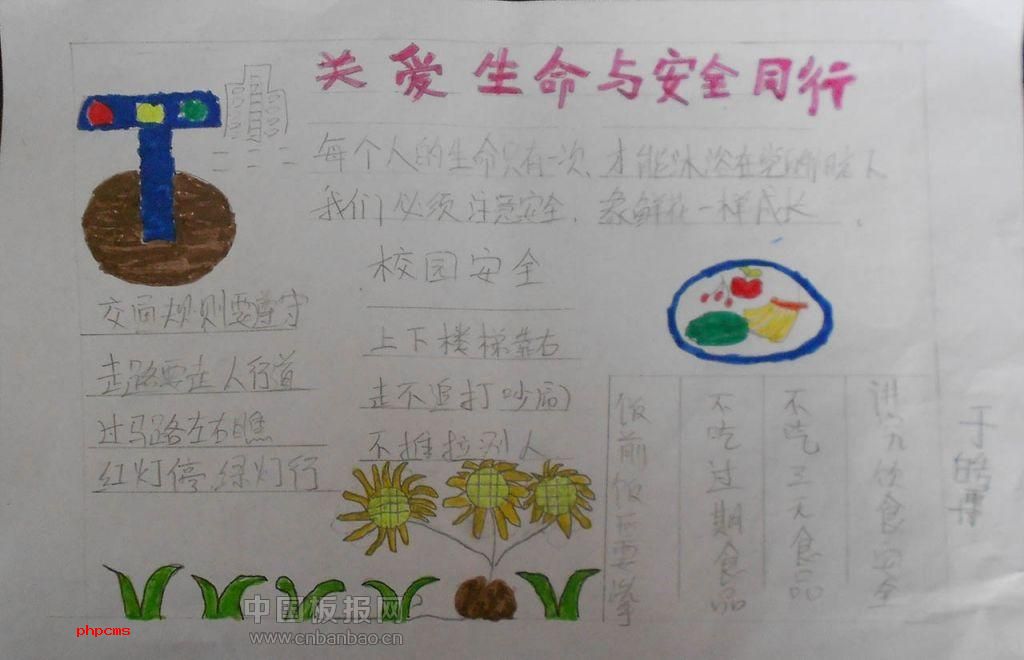 关爱生命与安全同行
每个人的生命只有一次、才能沐浴在党的阳光下
我们必须注意安全、象鲜花一样成长。
交通规则要遵守
走路要走人行道
过马路左右瞧
红灯停,绿灯行
校园安全
上下楼梯靠右
走不追打吵闹
不推拉别人
讲究饮食安全
不吃三无食品
不吃过期食品
饭前饭后要洗手
于皓
中国板报网
www.cnbanbao.cn
phpcms